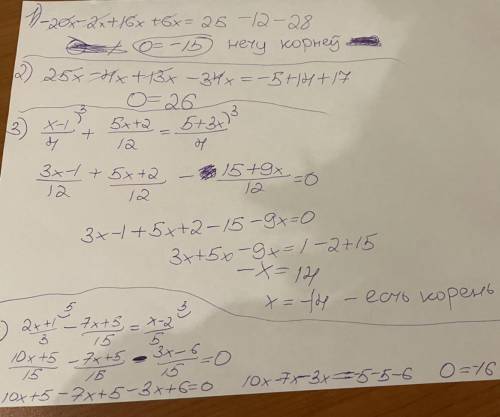 1) -20x-2x+16x+6x= 25 -12-28
0=-15 нету корней
2) 25x-4x+13x-34x=-5+14+17
0=26
3) x-1/4 ^3 + 5x+2/12 = 5+3x/4 ^3
3x-1/12 + 5x+2/12 - 15+9x/12 =0
3x-1+5x+2-15-9x=0
3x+5x-9x=1-2+15
-x=14
x=-14 - есть корень
) 2x+1/3 ^5 - 7x+5/15 = x-2/5 ^3
10x+5/15 - 7x+5/15 - 3x-6/15 =0
10x+5-7x+5-3x+6=0 10x-7x-3x=-5-5-6 0=-16